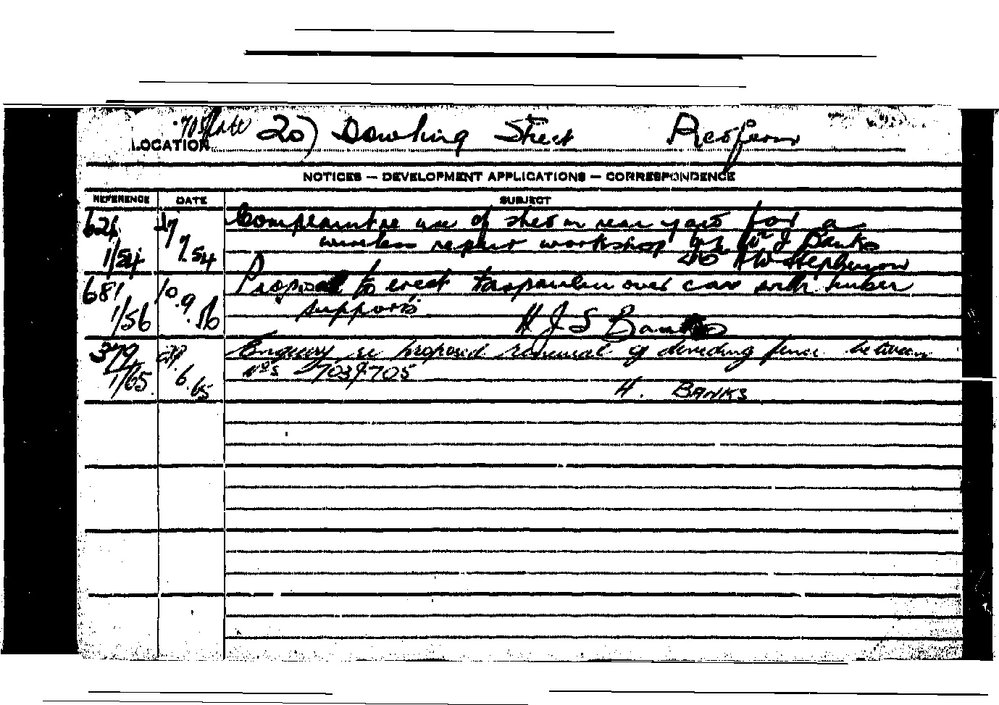 705 (late 20) Dowling Street Redfern
LOCATION
NOTICES — DEVELOPMENT APPLICATIONS — CORRESPONDENCE
REFERENCE DATE SUBJECT
626 1/54 27 7.54 Complaint re use of shed in rear yard for a
wireless repair workshop by Mr J Banks
H W Stephenson
681 1/56 10.9.56 Proposal to erect Tarpaulin over car with timber
supports
H J S Banks
379 1/65 6.65 Enquiry re proposed renewal of dividing fence between
Nos 703 & 705
H. BANKS